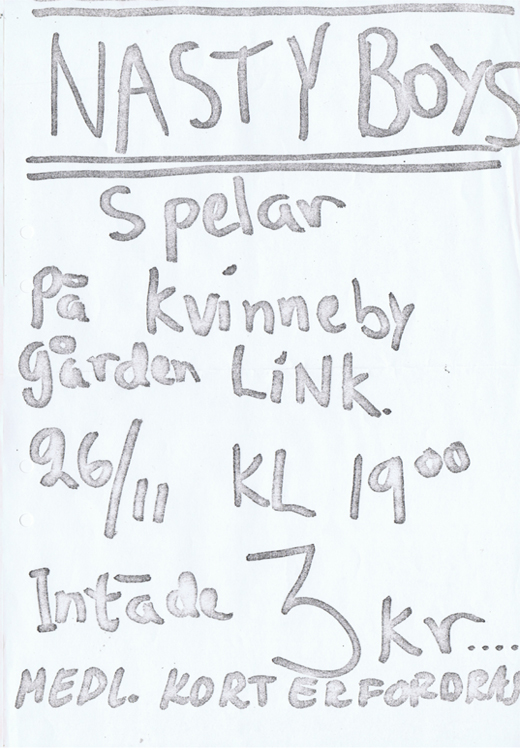 NASTY BOYS
Spelar
På kvinneby
gården LiNK.
26/11 KL 19⁰⁰
Intäde 3 kr....
MEDL. KORT ERFORDRAS